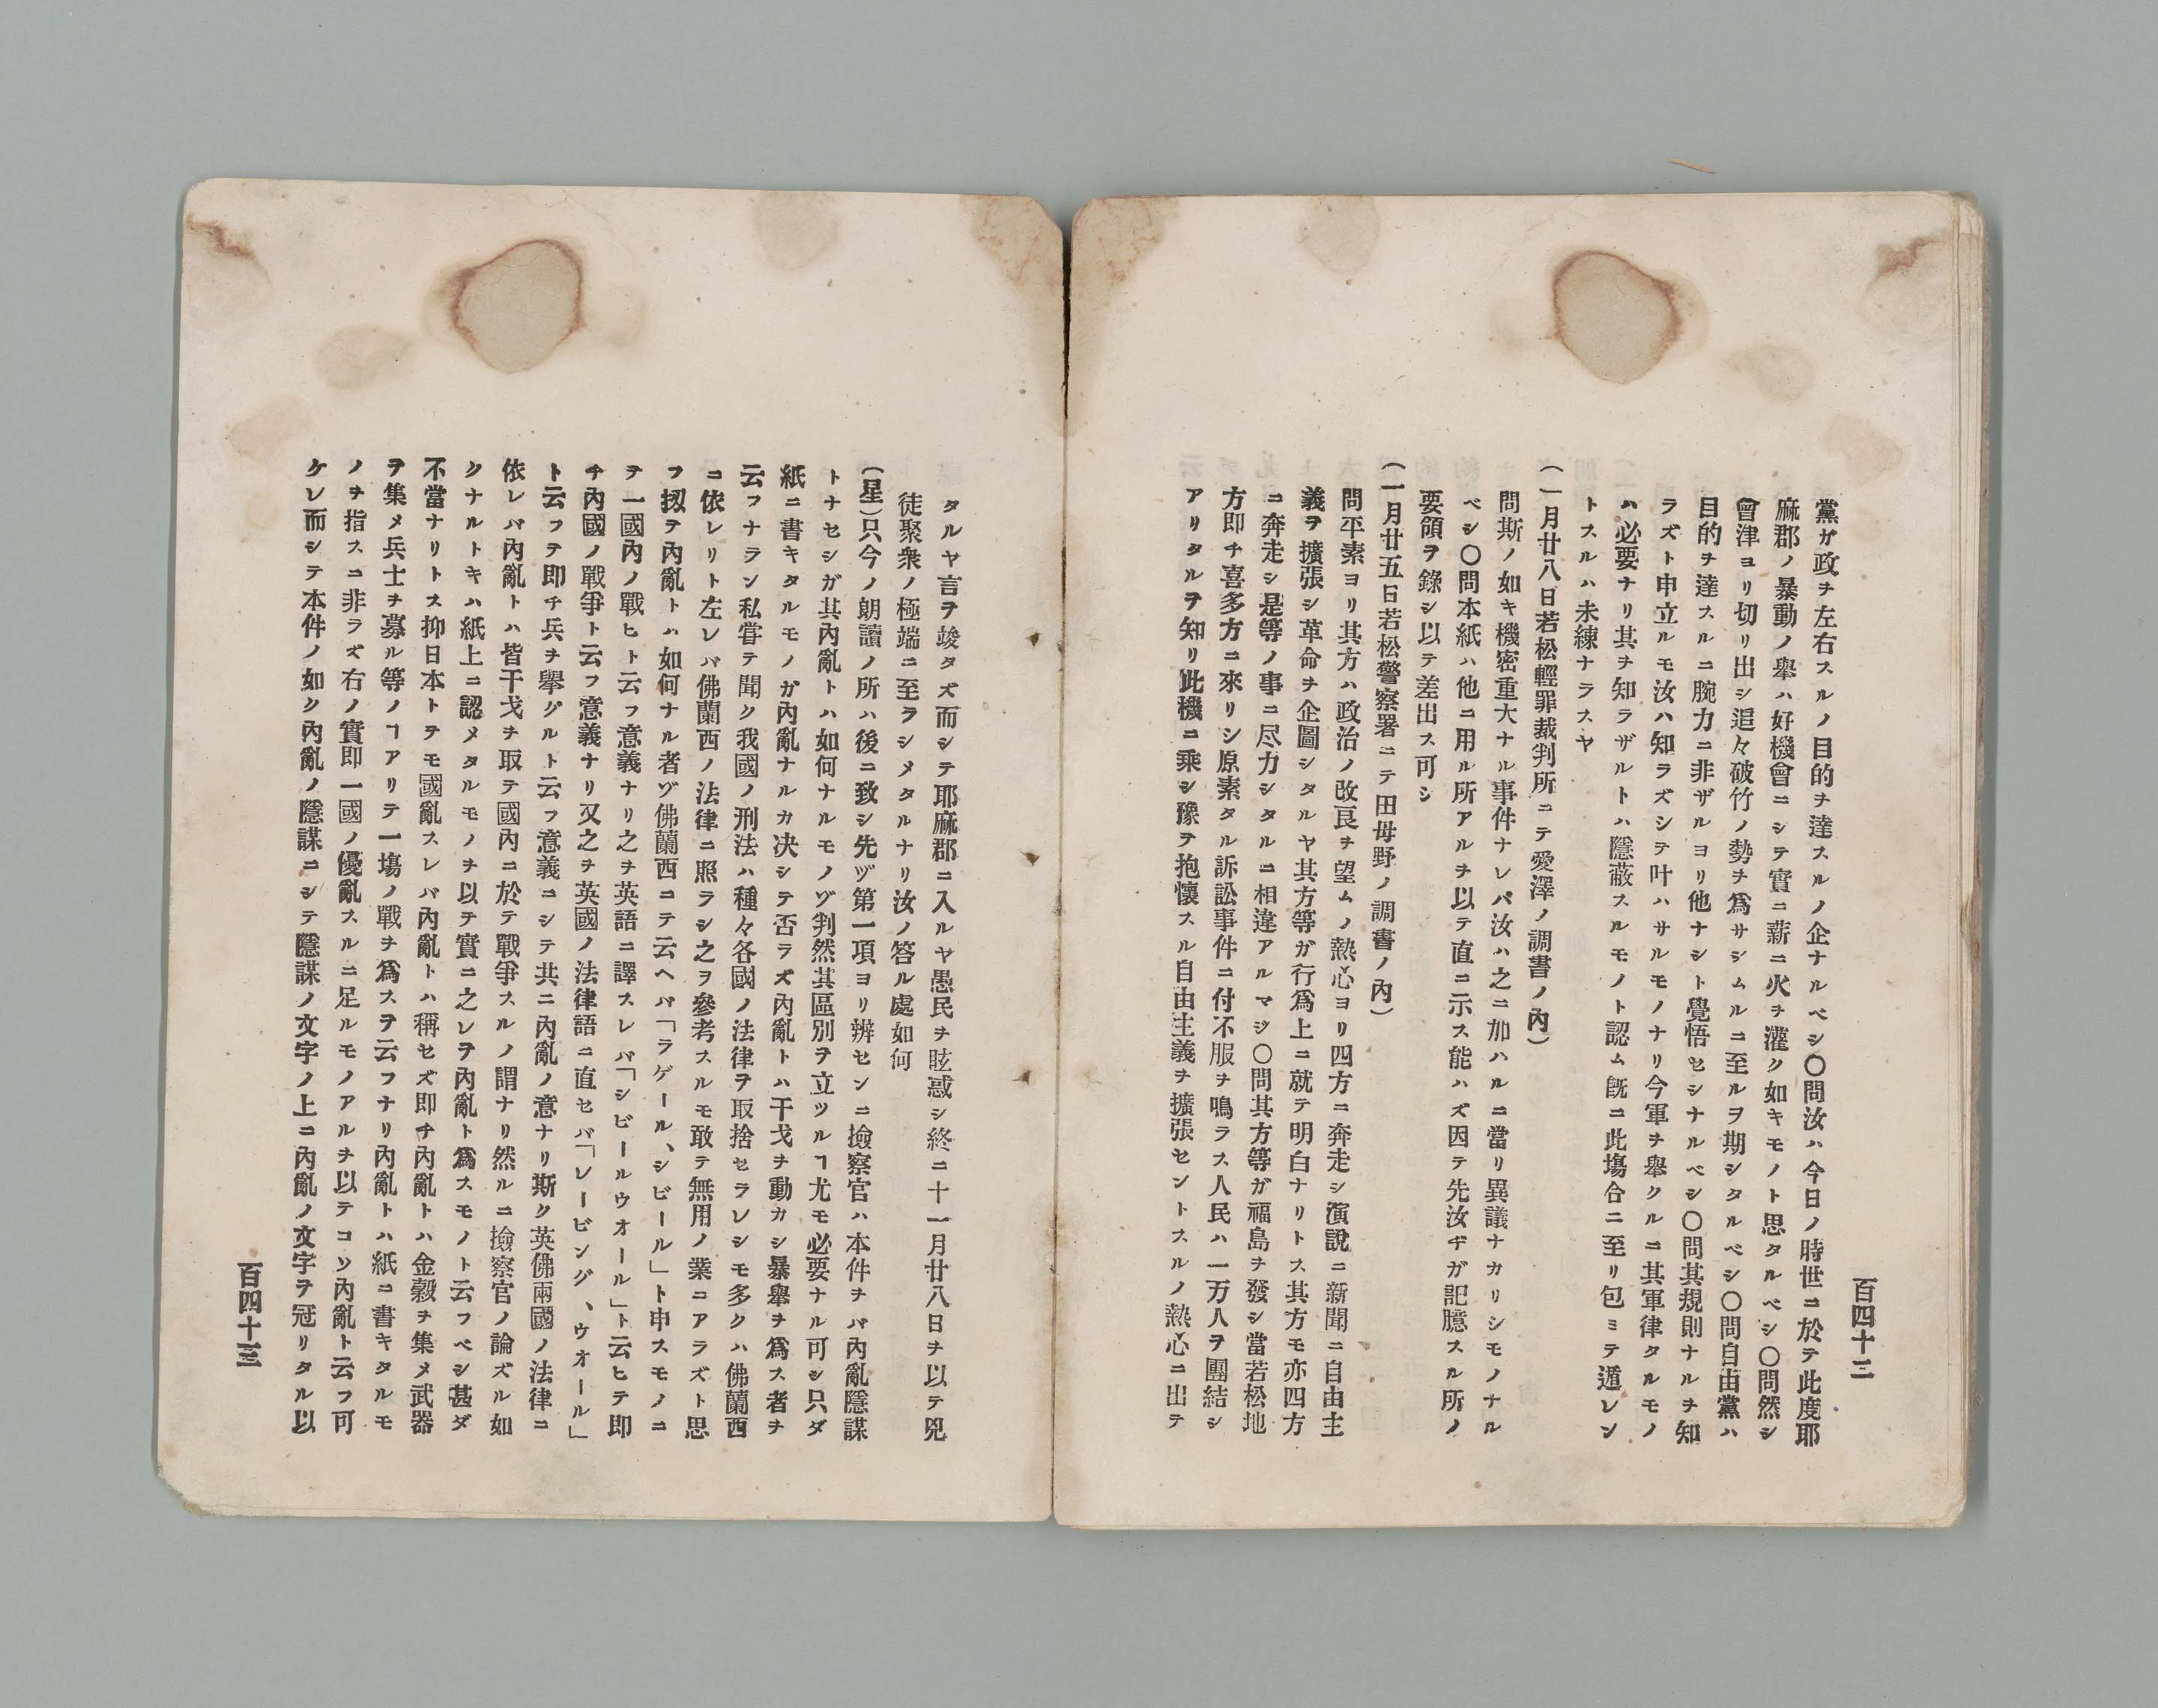 百四十二
黨ガ政ヲ左右スルノ目的ヲ達スルノ企ナルベシ〇問汝ハ今日ノ時世ニ於テ此度耶
麻郡ノ暴動ノ擧ハ好機會ニシテ實ニ薪ニ火ヲ灌ク如キモノト思タルベシ〇問然シ
會津ヨリ切リ出シ追々破竹ノ勢ヲ爲サシムルニ至ルヲ期シタルベシ〇問自由黨ハ
目的ヲ達スルニ腕力ニ非ザルヨリ他ナシト覺悟セシナルベシ〇問其規則ナルヲ知
ラズト申立ルモ汝ハ知ラズシテ叶ハサルモノナリ今軍ヲ擧クルニ其軍律タルモノ
ハ必要ナリ其ヲ知ラザルトハ隱蔽スルモノト認ム既ニ此塲合ニ至リ包ミテ遁レン
トスルハ未練ナラスヤ
(一月廿八日若松輕罪裁判所ニテ愛澤ノ調書ノ內)
問斯ノ如キ機密重大ナル事件ナレバ汝ハ之ニ加ハルニ當リ異議ナカリシモノナル
ベシ〇問本紙ハ他ニ用ル所アルヲ以テ直ニ示ス能ハズ因テ先汝ヂガ記臆スル所ノ
要領ヲ錄シ以テ差出ス可シ
(一月廿五日若松警察署ニテ田母野ノ調書ノ內)
問平素ヨリ其方ハ政治ノ改良ヲ望ムノ熱心ヨリ四方ニ奔走シ演說ニ新聞ニ自由主
義ヲ擴張シ革命ヲ企圖シタルヤ其方等ガ行爲上ニ就テ明白ナリトス其方モ亦四方
ニ奔走シ是等ノ事ニ尽力シタルニ相違アルマジ〇問其方等ガ福島ヲ發シ當若松地
方即チ喜多方ニ來リシ原素タル訴訟事件ニ付不服ヲ鳴ラス人民ハ一万人ヲ團結シ
アリタルヲ知リ此機ニ乘シ豫ヲ抱懷スル自由主義ヲ擴張セントスルノ熱心ニ出テ
タルヤ言ヲ竣タズ而シテ耶麻郡ニ入ルヤ愚民ヲ眩惑シ終ニ十一月廿八日ヲ以テ兇
徒聚衆ノ極端ニ至ラシメタルナリ汝ノ答ル處如何
(星)只今ノ朗讀ノ所ハ後ニ致シ先ヅ第一項ヨリ辨センニ撿察官ハ本件ヲバ內亂隱謀
トナセシガ其內亂トハ如何ナルモノゾ判然其區別ヲ立ツルヿ尤モ必要ナル可シ只ダ
紙ニ書キタルモノガ內亂ナルカ决シテ否ラズ內亂トハ干戈ヲ動カシ暴擧ヲ爲ス者ヲ
云フナラン私嘗テ聞ク我國ノ刑法ハ種々各國ノ法律ヲ取捨セラレシモ多クハ佛蘭西
ニ依レリト左レバ佛蘭西ノ法律ニ照ラシ之ヲ參考スルモ敢テ無用ノ業ニアラズト思
フ扨テ內亂トハ如何ナル者ゾ佛蘭西ニテ云ヘバ「ラゲール、シビール」ト申スモノニ
テ一國內ノ戰ヒト云フ意義ナリ之ヲ英語ニ譯スレバ「シビールウオール」ト云ヒテ即
チ內國ノ戰爭ト云フ意義ナリ又之ヲ英國ノ法律語ニ直セバ「レービング、ウオール」
ト云フテ即チ兵ヲ擧グルト云フ意義ニシテ共ニ內亂ノ意ナリ斯ク英佛兩國ノ法律ニ
依レバ內亂トハ皆干戈ヲ取テ國內ニ於テ戰爭スルノ謂ナリ然ルニ撿察官ノ論ズル如
クナルトキハ紙上ニ認メタルモノヲ以テ實ニ之レヲ內亂ト爲スモノト云フベシ甚ダ
不當ナリトス抑日本トテモ國亂スレバ內亂トハ稱セズ即チ內亂トハ金穀ヲ集メ武器
ヲ集メ兵士ヲ募ル等ノヿアリテ一塲ノ戰ヲ爲スヲ云フナリ內亂トハ紙ニ書キタルモ
ノヲ指スニ非ラズ右ノ實即一國ノ優亂スルニ足ルモノアルヲ以テコソ內亂ト云フ可
ケレ而シテ本件ノ如ク內亂ノ隱謀ニシテ隱謀ノ文字ノ上ニ內亂ノ文字ヲ冠リタル以
百四十三